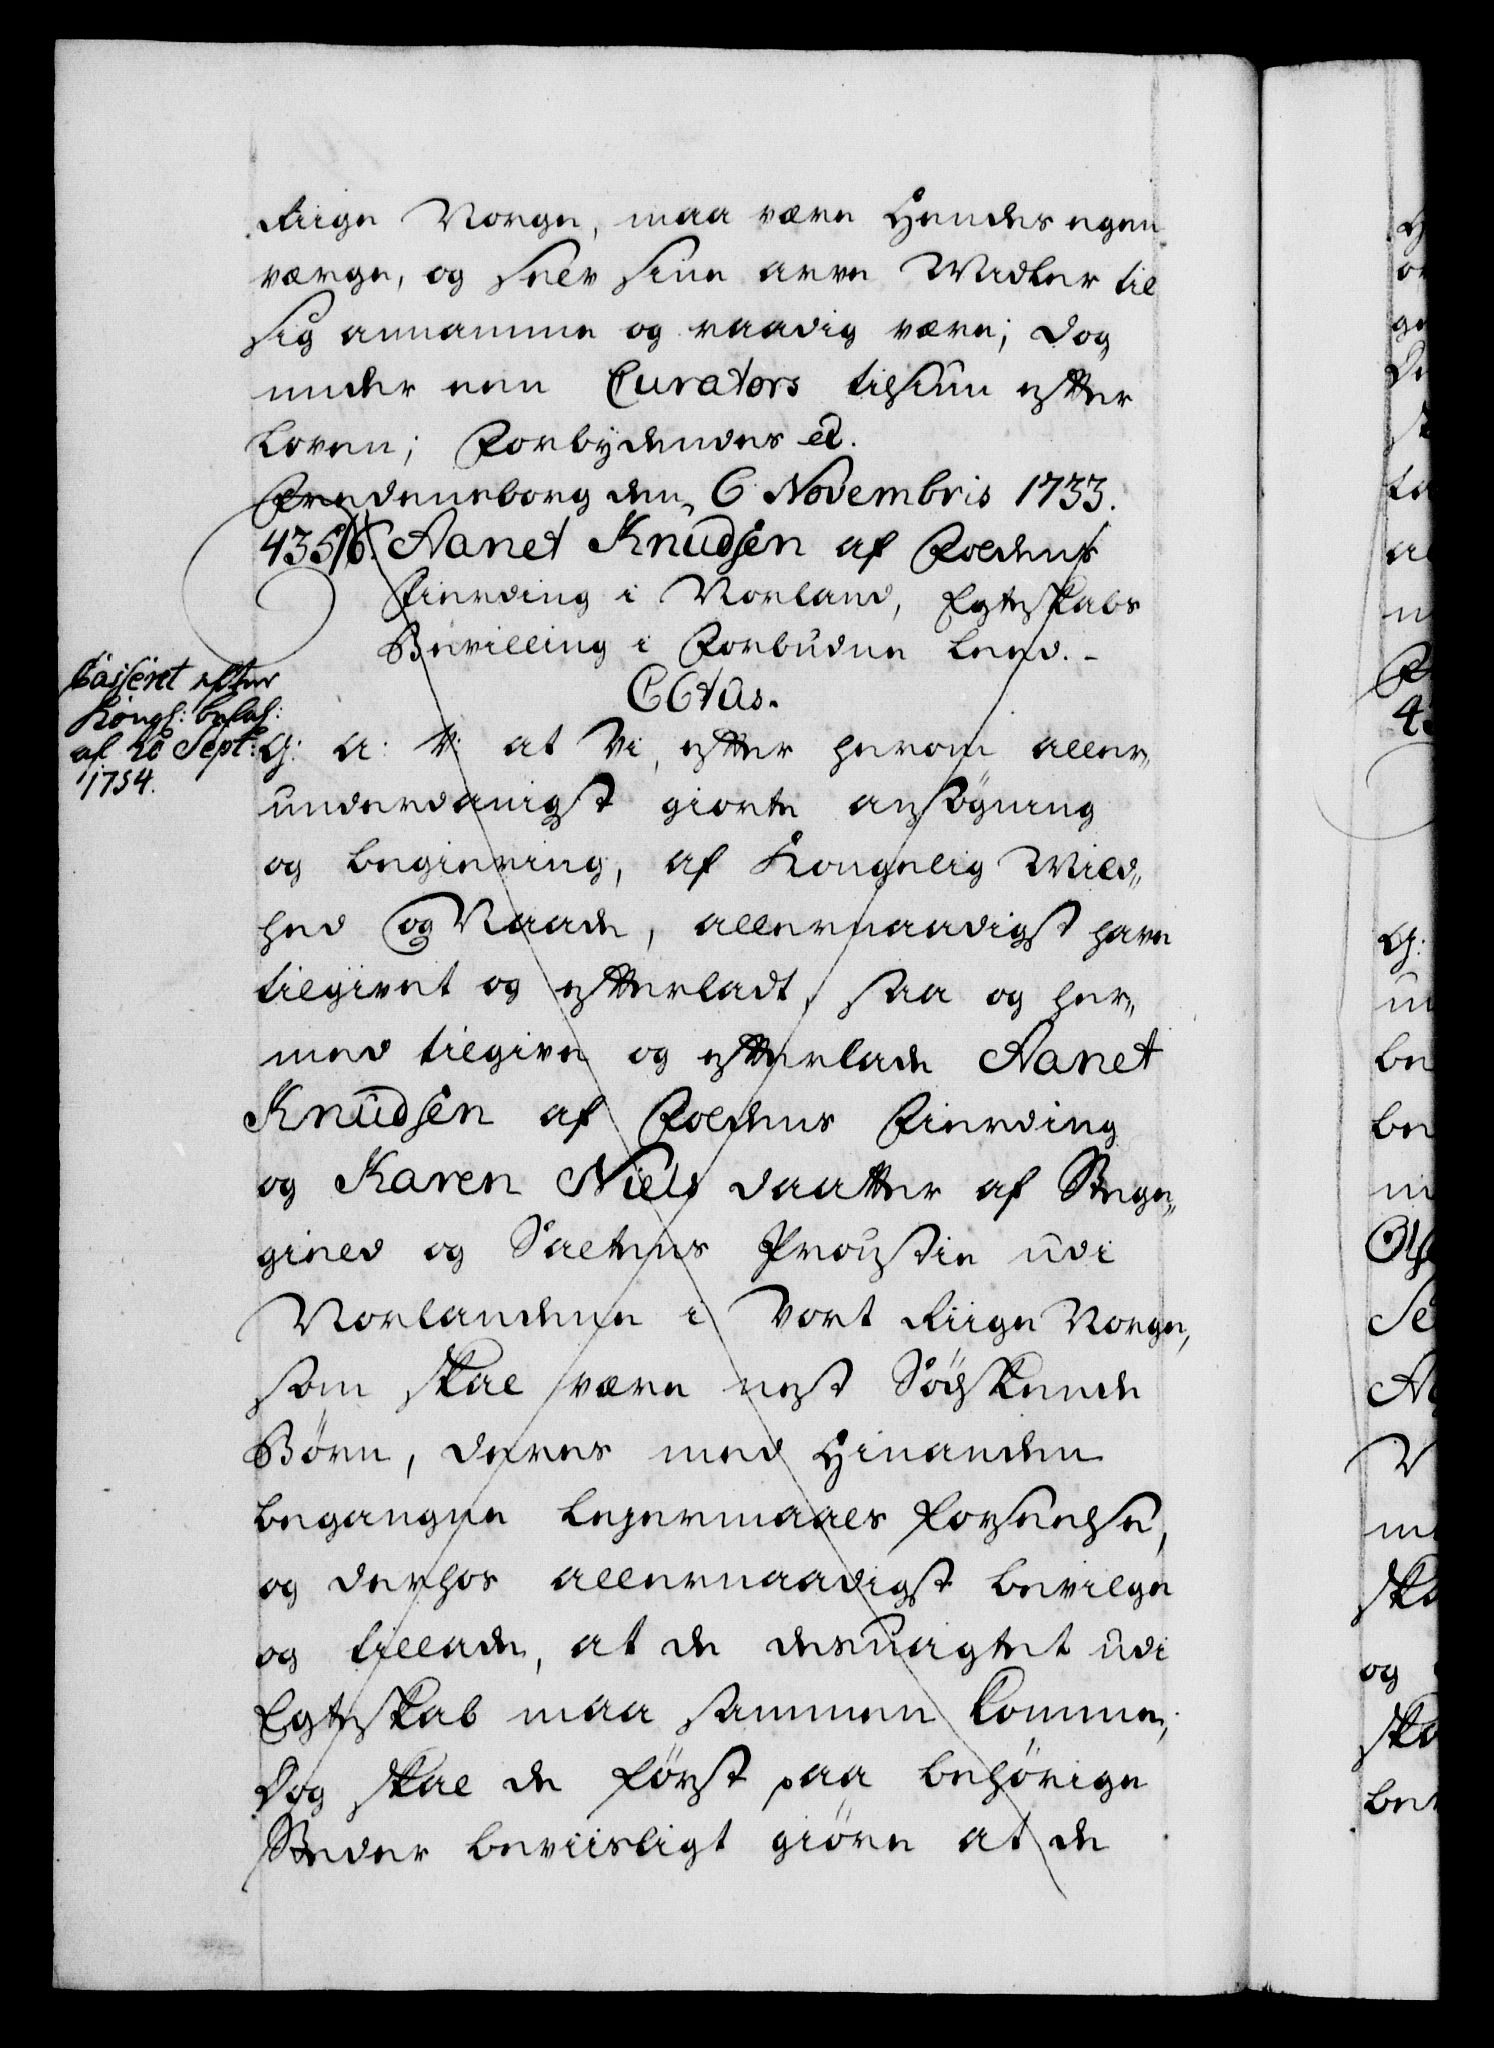 Riige Norge, maa være Hendes egen
værge, og selv sine arve Midler til
sig annamme og raadig være; dog
under een Curators tilsiun efter
Loven; Forbydendes &c.
Fredensborg den 6 Novembris 1733.
435/6. Aanet Knudsen af Foldens
Fierding i Norland, Egteskabs
Bevilling i Forbudne Leed.
C 6tus.
Casseret efter
Kongl: befal:
af 20 Sept:
1754.
G: A: V: at Vi, efter herom aller„
underdanigst giorte ansøgning
og begiering, af Kongelig Mild„
hed og Naade, allernaadigst have
tilgivet og efterladt, saa og her„
med tilgive og efterlade Aanet
Knudsen af Foldens Fierding
og Karen Niels daatter af Stege„
gield og Saltens Proustie udi
Norlandene i Vort Riige Norge,
som skal være nest Södskende
Børn, deres med Hinanden
begangne Lejermaals forseelse,
og derhos allernaadigst bevilge
og tillade, at de desuagtet udi
Egteskab maa sammen komme;
Dog skal de først paa behörige
Steder beviisligt giøre at de